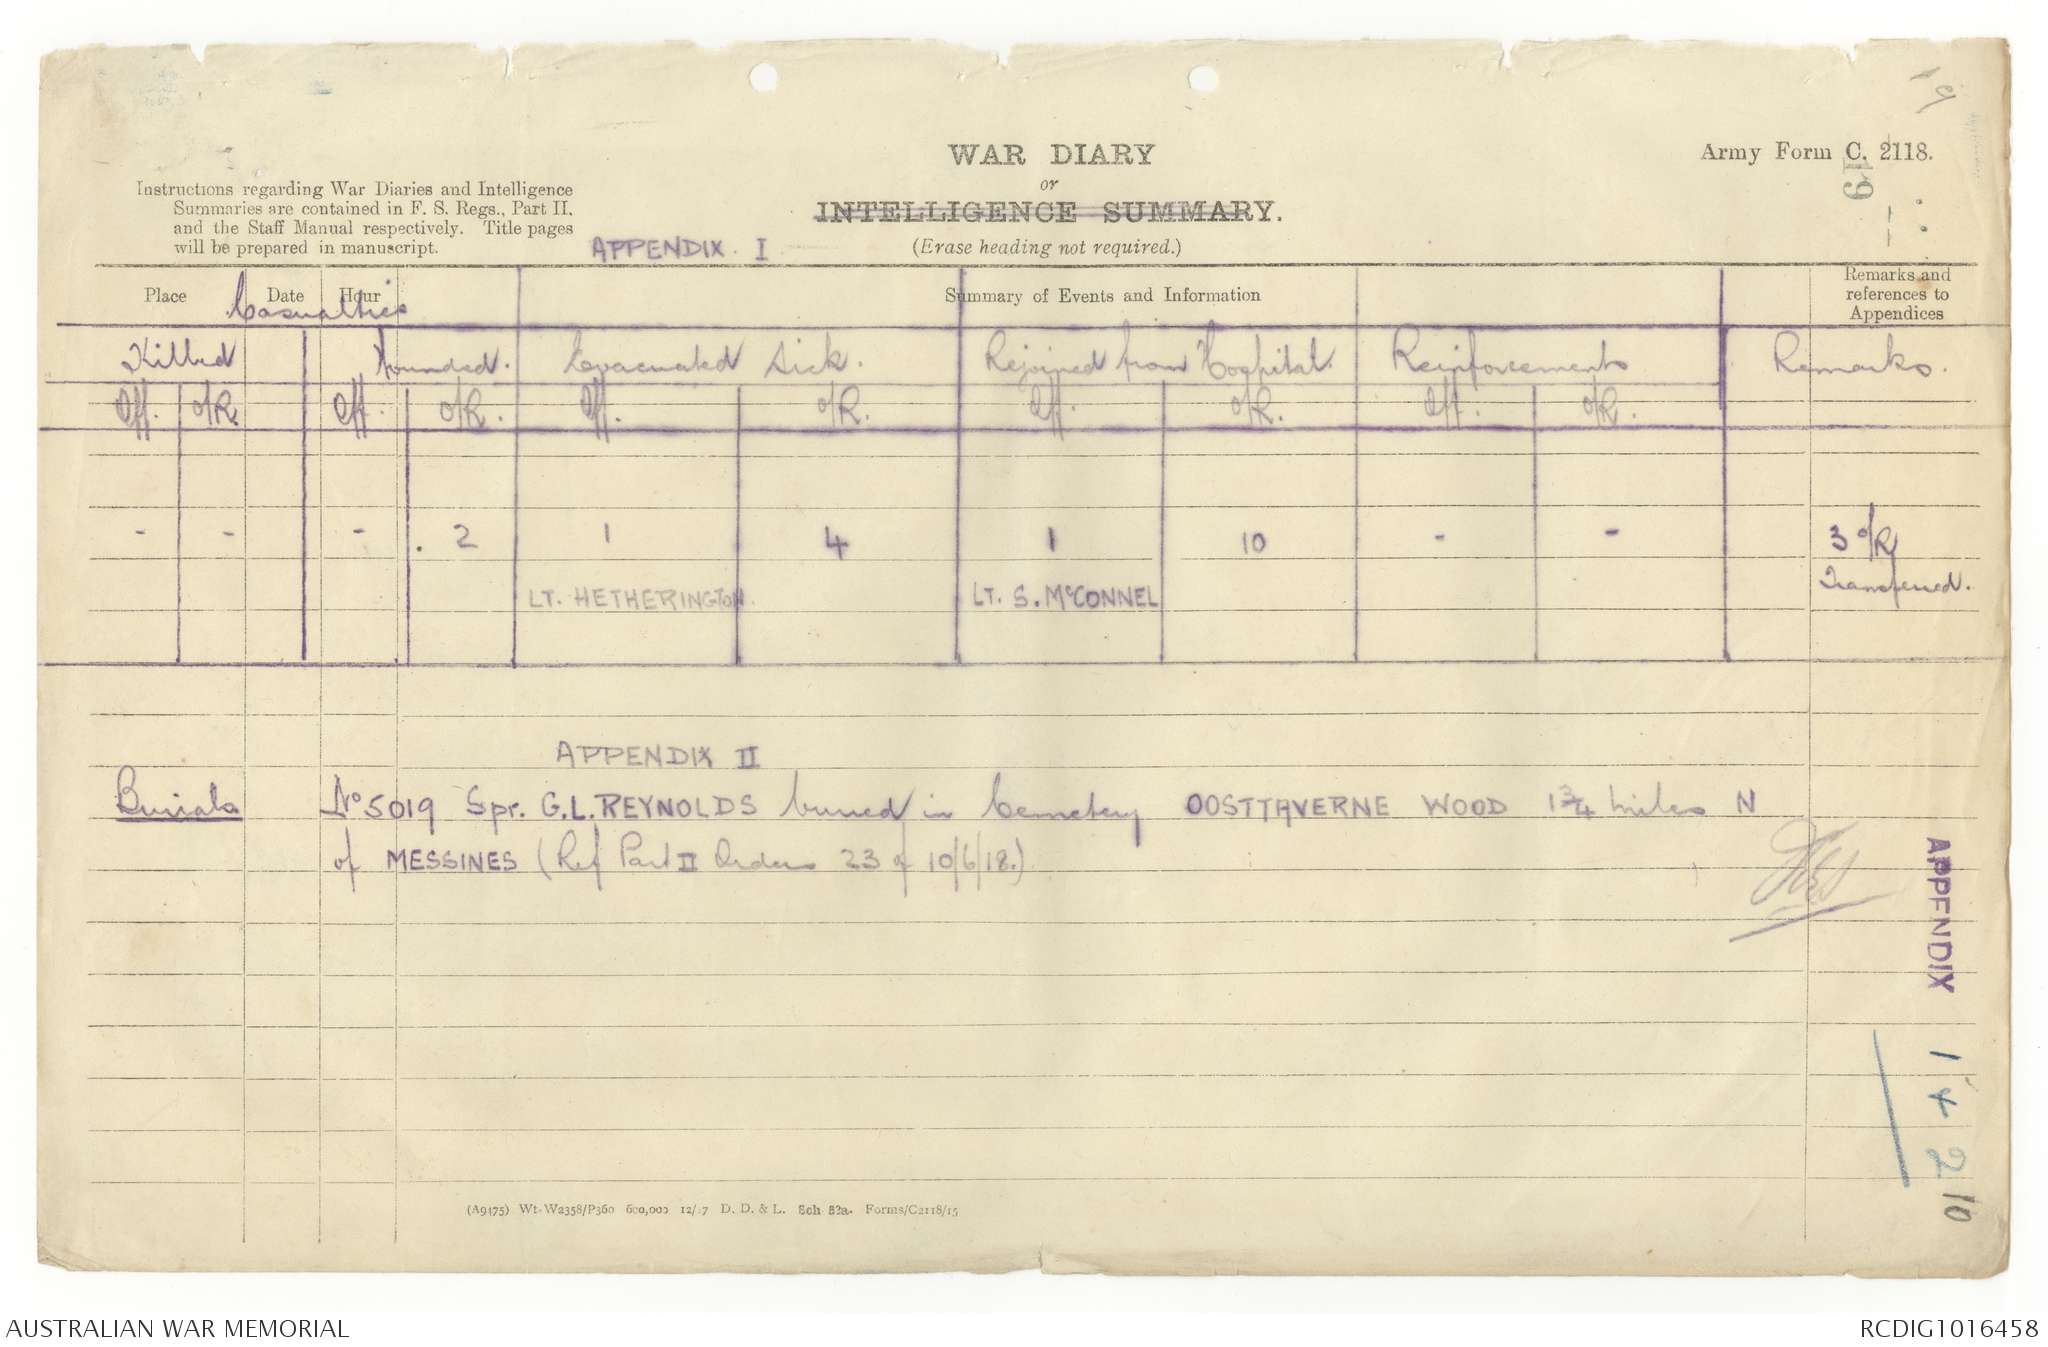 WAR DIARY
or
INTELLIGENCE SUMMARY.
(Erase heading not required.)
Army Form C. 2118.
19
Instructions regarding War Diaries and Intelligence
Summaries are contained in F. S. Regs., Part II.
and the Staff Manual respectively. Title pages
will be prepared in manuscript.
APPENDIX. I
Place Date Hour Summary of Events and Information Remarks and
references to
Appendices
Casualties
Killed Wounded. Evacuated Sick. Rejoined from Hospital. Reinforcements Remarks.
Off. o/R. Off. o/R. Off. o/R. Off. o/R. Off. o/R.
- - - 2 1 4 1 10 - - 3 o/R
LT. HETHERINGTON. LT. S. McCONNEL Transferred.
APPENDIX II
Burials No 5019 Spr. G.L. REYNOLDS buried in Cemetery OOSTTAVERNE WOOD 1 3/4 miles N
of MESSINES (Ref Part II Orders 23 of 10/6/18.)
APPENDIX
1 + 2
10
(A9475) Wt. W2358/P360 600,000 12/17 D. D. & L. Sch 52a. Forms/C2118/15
AUSTRALIAN WAR MEMORIAL
RCDIG1016458